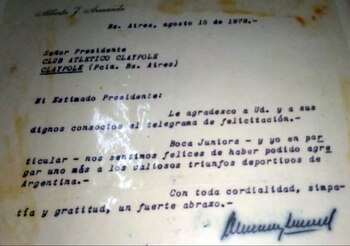 Alberto J. Armando
Bs. Aires, agosto 15 de 1978.-
Señor Presidente
CLUB ATLETICO CLAYPOLE
CLAYPOLE (Pcia. Bs. Aires)
Mi Estimado Presidente:
Le agradesco a Ud. y a sus
dignos consocios el telegrama de felicitación.-
Boca Juniors - y yo en par
ticular - nos sentimos felices de haber podido agre
gar uno más a los valiosos triunfos deportivos de
Argentina.-
Con toda cordialidad, simpa-
tía y gratitud, un fuerte abrazo.-